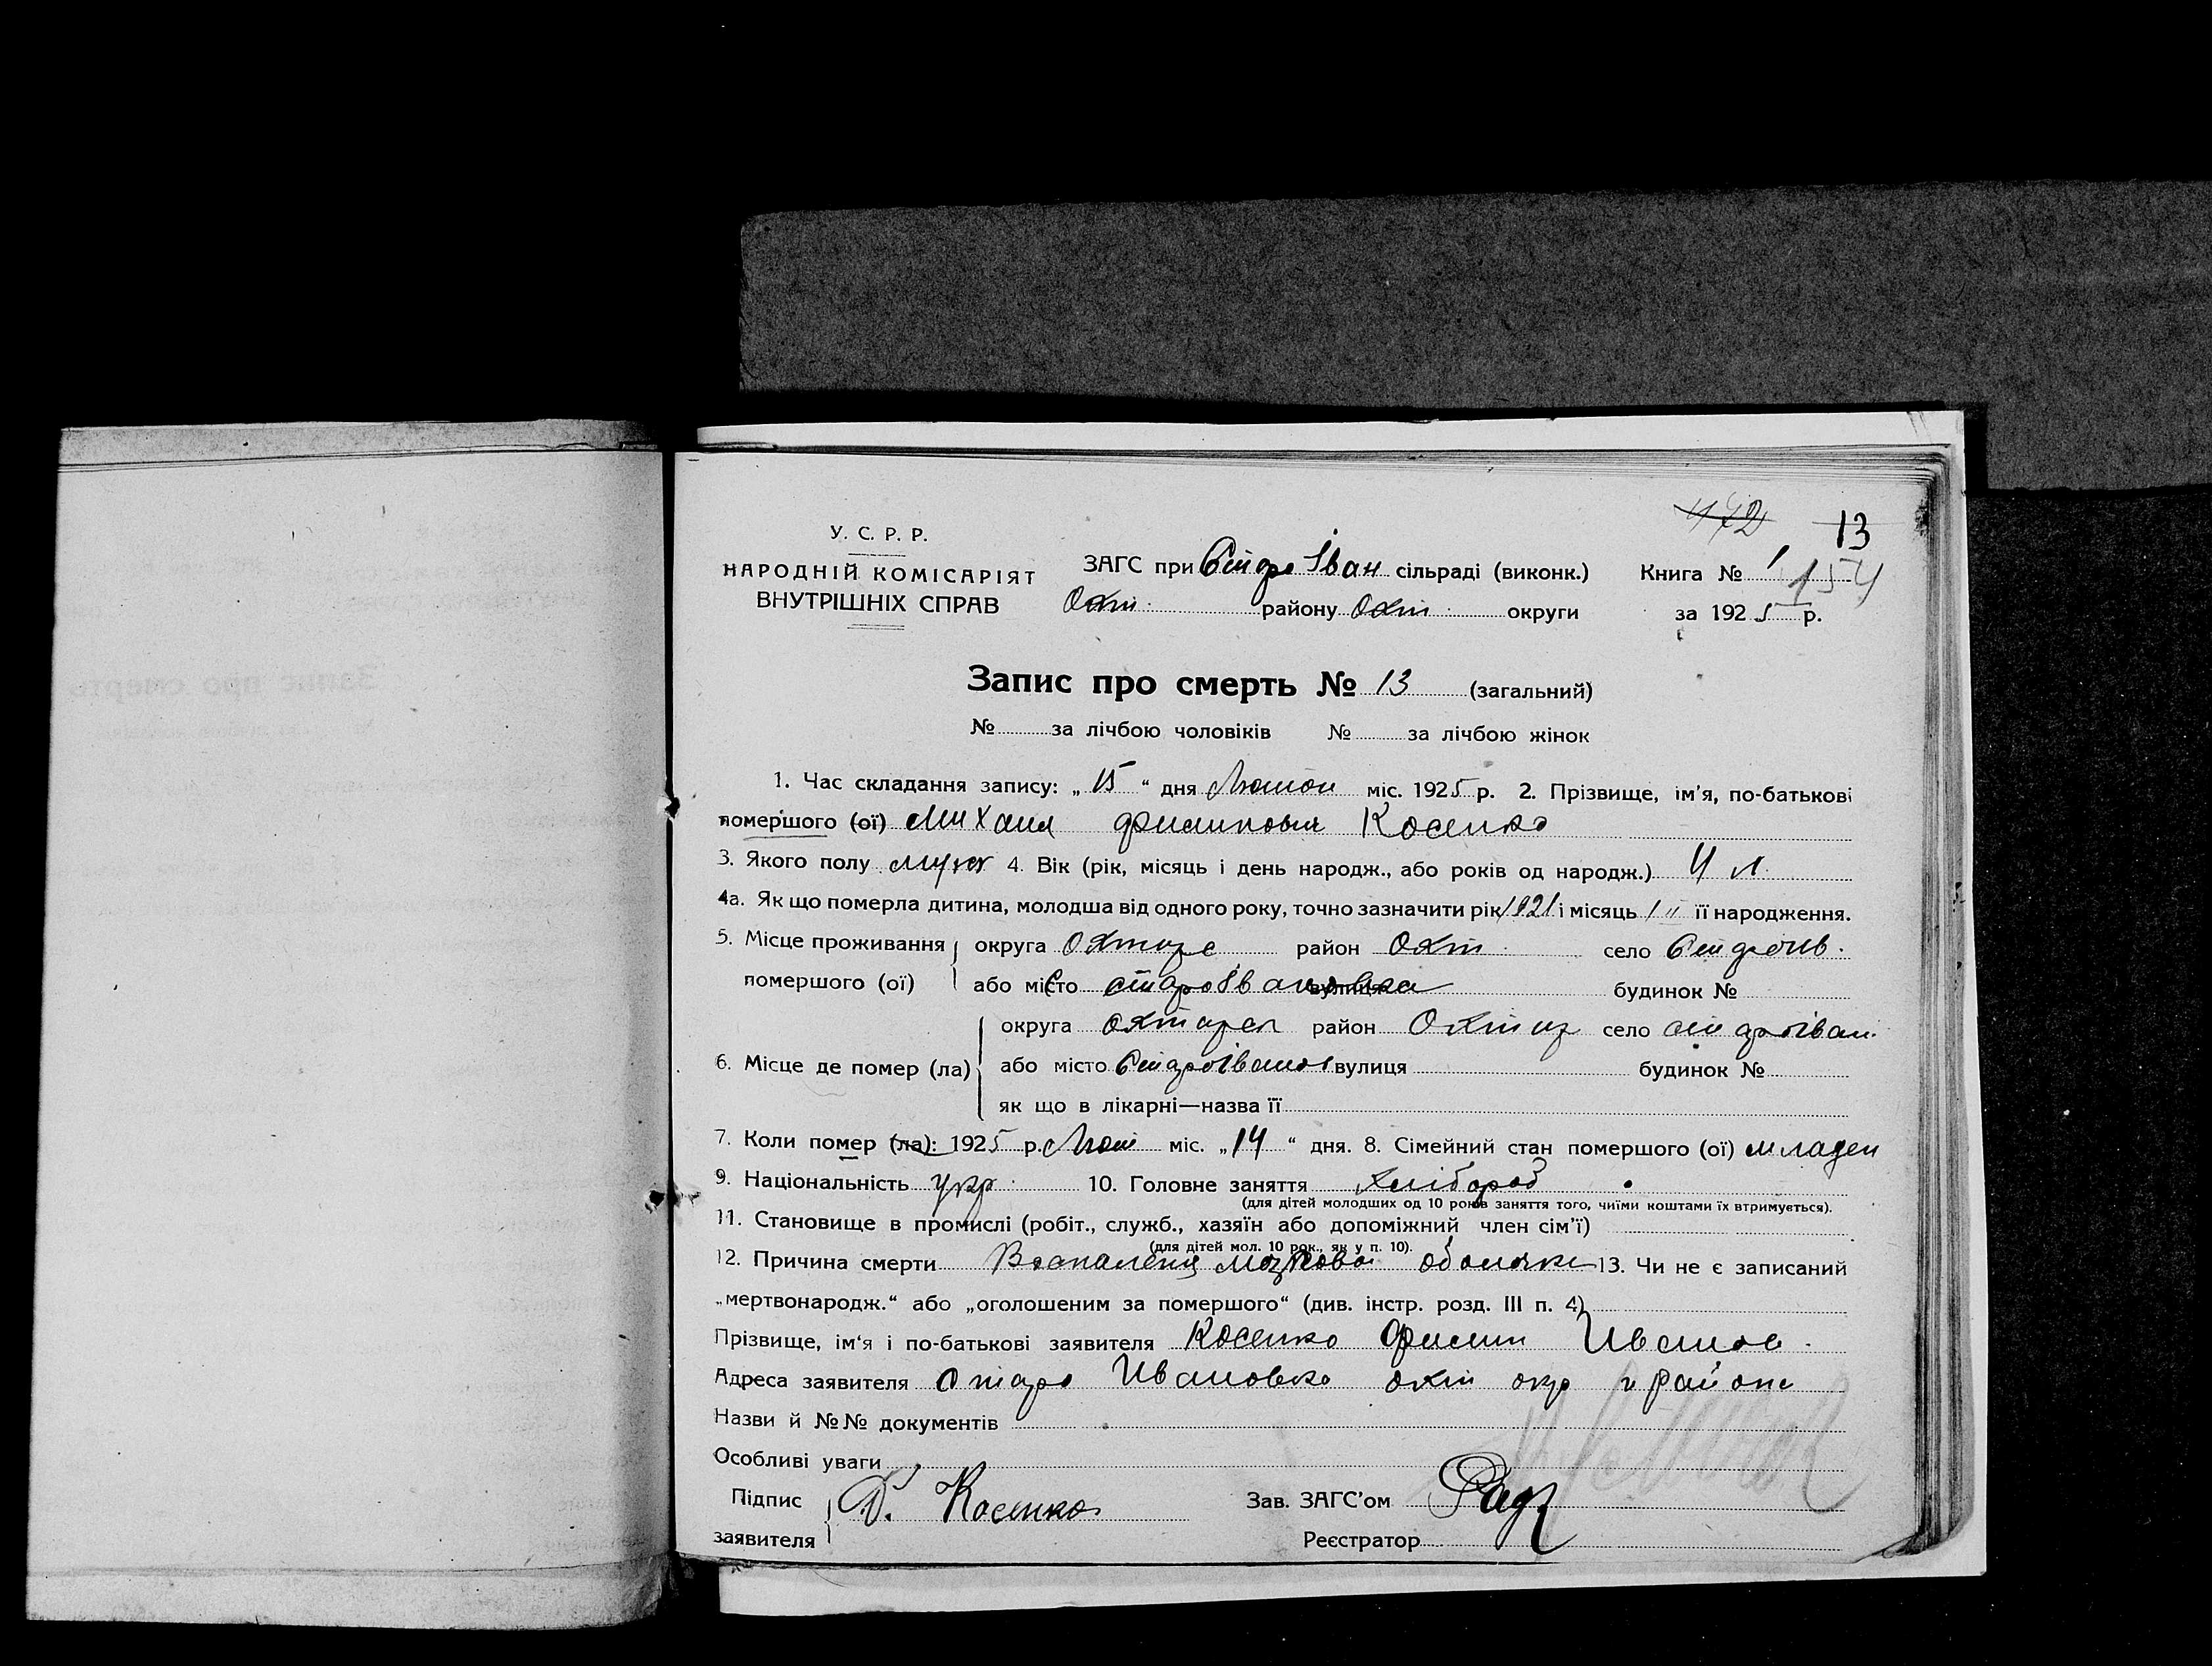 472 13
У. С. Р. Р.
НАРОДНІЙ КОМІСАРІЯТ
ВНУТРІШНІХ СПРАВ
ЗАГС при Старо Іван сільраді (виконк.)
Охт. району Охт. округи
Книга № 1 154
за 1925 р.
Запис про смерть № 13 (загальний)
№ за лічбою чоловіків № за лічбою жінок
1. Час складання запису: „ 15 “ дня міс. 1925 р. 2. Прізвище, ім'я, по-батькові
померішого (ої) Михаил Филипович Косенко
3. Якого полу муж 4. Вік (рік, місяць і день народж., або років од народж.) 4 л.
4а. Як що померла дитина, молодша від одного року, точно зазначити рік 1921 і місяць її народження.
5. Місце проживання округа район Охт. село
помершого (ої) або місто староІвановка вулиця будинок №
округа район село староіван.
6. Місце де помер (ла) або місто Староіванов вулиця будинок №
як що в лікарні—назва її
7. Коли помер (ла): 1925 р. Лют міс. „ 14 “ дня. 8. Сімейний стан помершого (ої) младен
9. Національність укр. 10. Головне заняття хлібороб
(для дітей молодших од 10 років заняття того, чиїми коштами їх втримується).
11. Становище в промислі (робіт., служб., хазяїн або допоміжний член сім'ї)
(для дітей мол. 10 рок., як у п. 10).
12. Причина смерти Воспаления мозковой оболочки 13. Чи не є записаний
„мертвонародж.“ або „оголошеним за помершого“ (див. інстр. розд. III п. 4)
Прізвище, ім'я і по-батькові заявителя Косенко Филип Иванов.
Адреса заявителя Старо Ивановка охт окр и района
Назви й №№ документів
Особливі уваги
Підпис заявителя Ф. Косенко Зав. ЗАГС'ом
Реєстратор